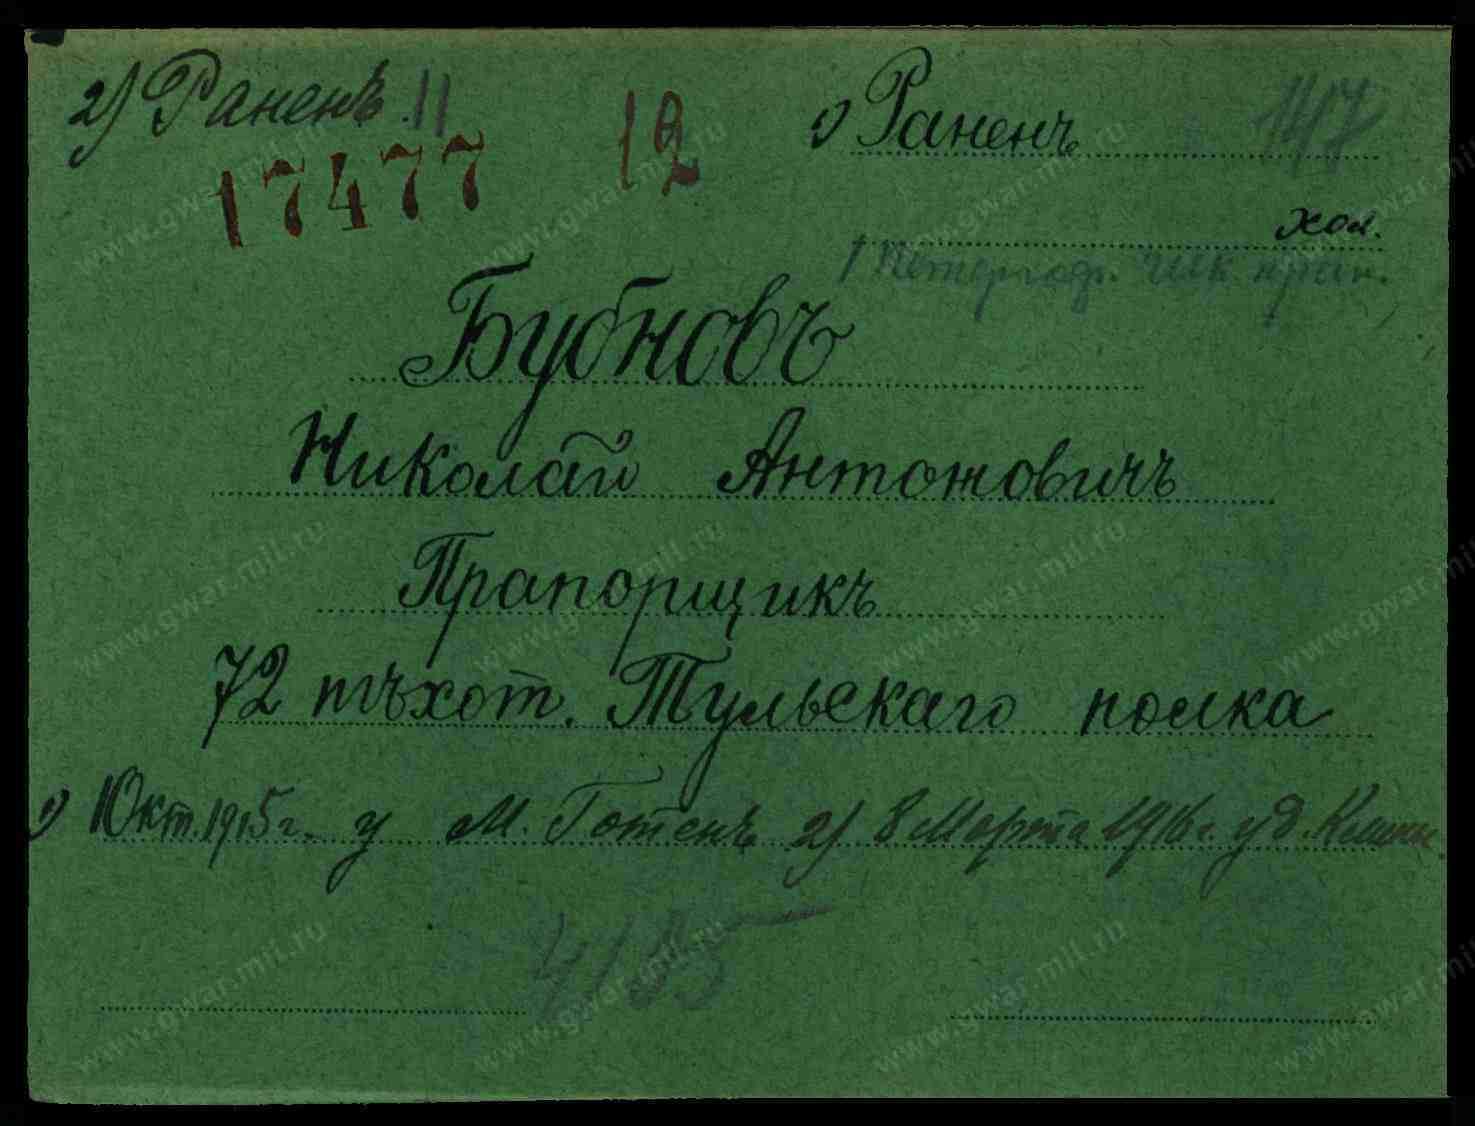 2) Раненъ. 11
17477
12
1) Раненъ
147
хол.
1 Петергоф. шк прап.
Бубновъ
Николай Антоновичъ
Прапорщикъ
72 пѣхот. Тульскаго полка
1) 1 Окт. 1915 г. у М. Готенъ 2) 8 Марта 1916 г. у д.
www.gwar.mil.ru